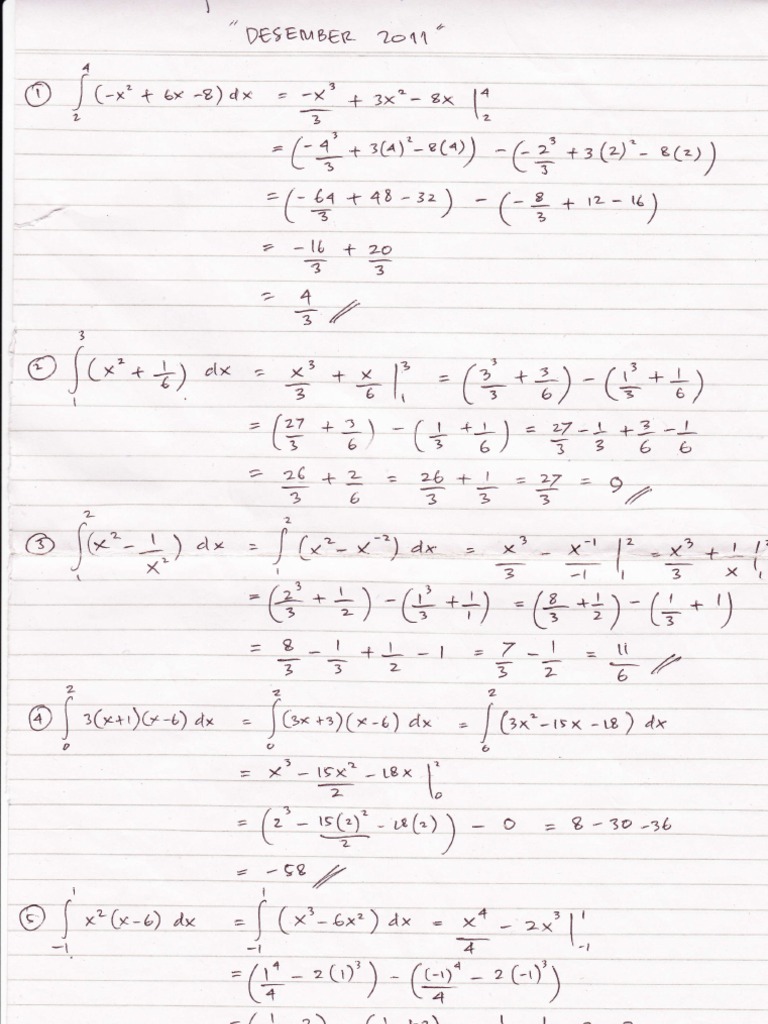 "DESEMBER 2011"
① ∫₂⁴ (-x² + 6x - 8) dx = -x³/3 + 3x² - 8x |₂⁴
= (-4³/3 + 3(4)² - 8(4)) - (-2³/3 + 3(2)² - 8(2))
= (-64/3 + 48 - 32) - (-8/3 + 12 - 16)
= -16/3 + 20/3
= 4/3 //
② ∫₁³ (x² + 1/6) dx = x³/3 + x/6 |₁³ = (3³/3 + 3/6) - (1³/3 + 1/6)
= (27/3 + 3/6) - (1/3 + 1/6) = 27/3 - 1/3 + 3/6 - 1/6
= 26/3 + 2/6 = 26/3 + 1/3 = 27/3 = 9 //
③ ∫₁² (x² - 1/x²) dx = ∫₁² (x² - x⁻²) dx = x³/3 - x⁻¹/-1 |₁² = x³/3 + 1/x |₁²
= (2³/3 + 1/2) - (1³/3 + 1/1) = (8/3 + 1/2) - (1/3 + 1)
= 8/3 - 1/3 + 1/2 - 1 = 7/3 - 1/2 = 11/6 //
④ ∫₀² 3(x+1)(x-6) dx = ∫₀² (3x+3)(x-6) dx = ∫₀² (3x² - 15x - 18) dx
= x³ - 15x²/2 - 18x |₀²
= (2³ - 15(2)²/2 - 18(2)) - 0 = 8 - 30 - 36
= -58 //
⑤ ∫₋₁¹ x²(x-6) dx = ∫₋₁¹ (x³ - 6x²) dx = x⁴/4 - 2x³ |₋₁¹
= (1⁴/4 - 2(1)³) - ((-1)⁴/4 - 2(-1)³)